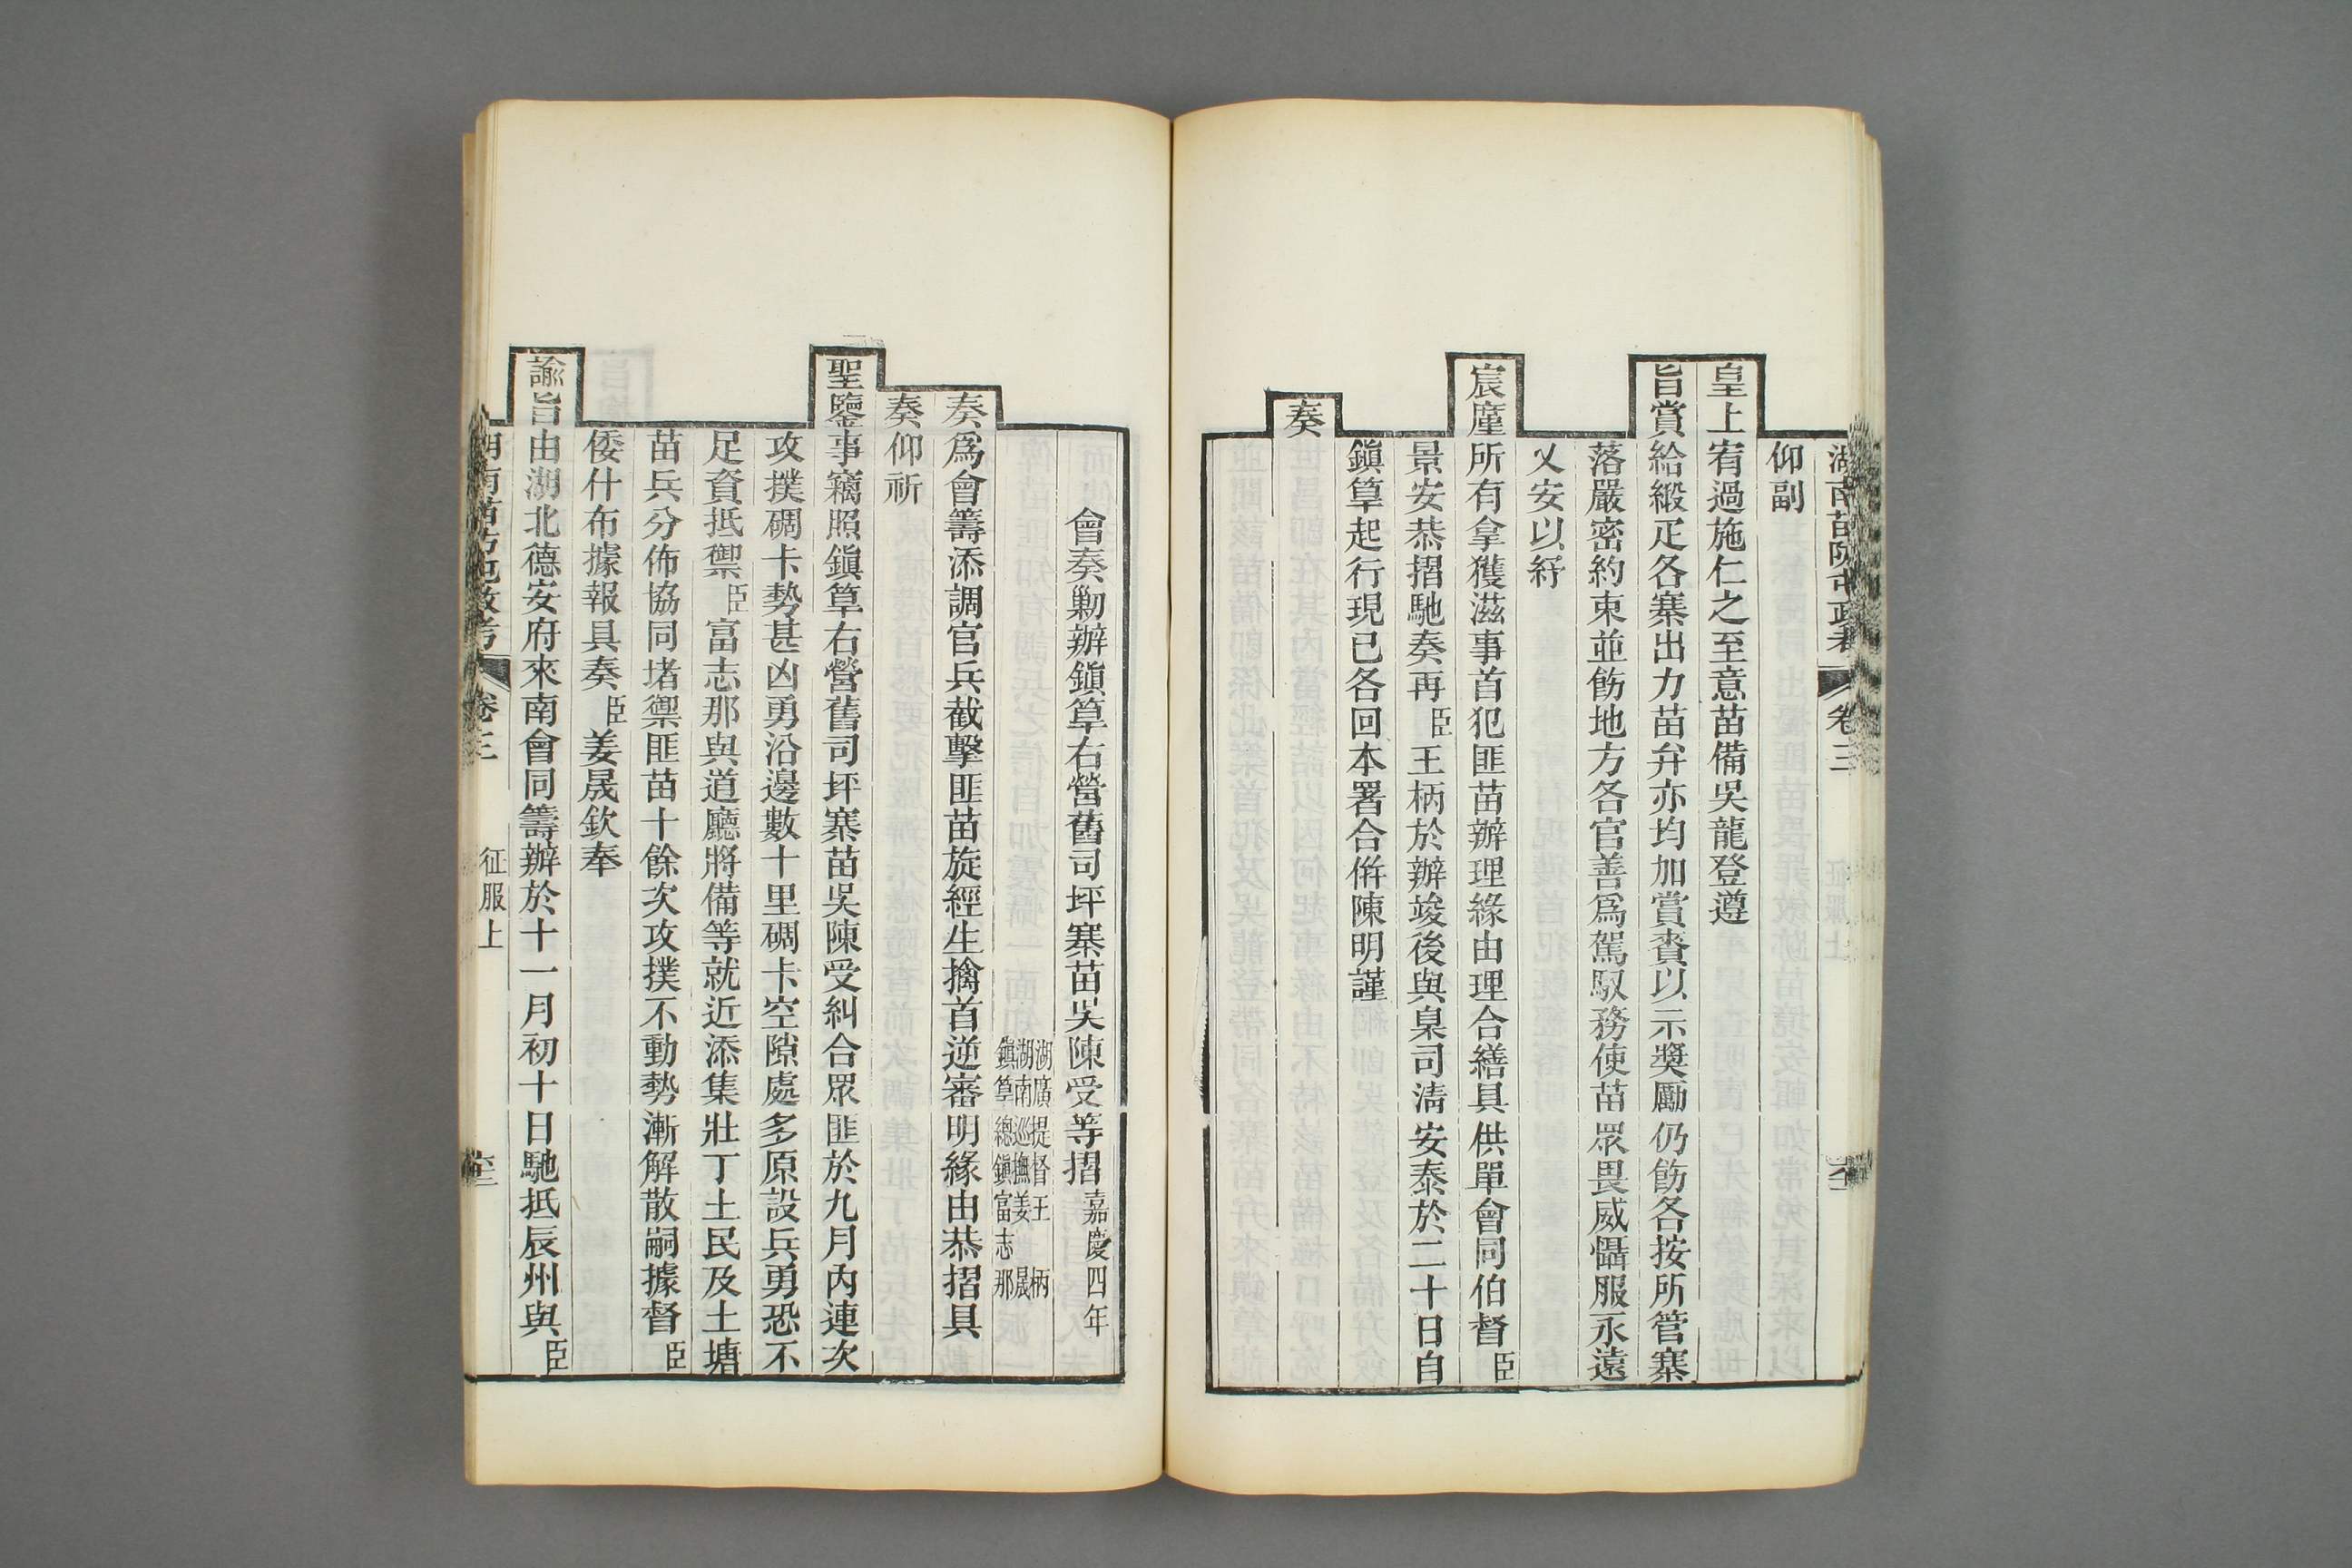 湖南苗防屯政考
卷三
仰副
皇上宥過施仁之至意苗備吳龍登遵
旨賞給緞疋各寨出力苗弁亦均加賞賚以示獎勵仍飭各按所管寨
落嚴密約束並飭地方各官善爲駕馭務使苗眾畏威懾服永遠
乂安以紓
宸廑所有拿獲滋事首犯匪苗辦理緣由理合繕具供單會同伯督臣
景安恭摺馳奏再臣王柄於辦竣後與臬司淸安泰於二十日自
鎭筸起行現已各回本署合倂陳明謹
奏
會奏勦辦鎭筸右營舊司坪寨苗吳陳受等摺嘉慶四年
湖廣提督王柄
湖南巡撫姜晟
鎭筸總鎭富志那
奏爲會籌添調官兵截擊匪苗旋經生擒首逆審明緣由恭摺具
奏仰祈
聖鑒事竊照鎭筸右營舊司坪寨苗吳陳受糾合眾匪於九月內連次
攻撲碉卡勢甚凶勇沿邊數十里碉卡空隙處多原設兵勇恐不
足資抵禦臣富志那與道廳將備等就近添集壯丁土民及土塘
苗兵分佈協同堵禦匪苗十餘次攻撲不動勢漸解散嗣據督臣
倭什布據報具奏臣姜晟欽奉
諭旨由湖北德安府來南會同籌辦於十一月初十日馳抵辰州與臣
湖南苗防屯政考
卷三
征服上